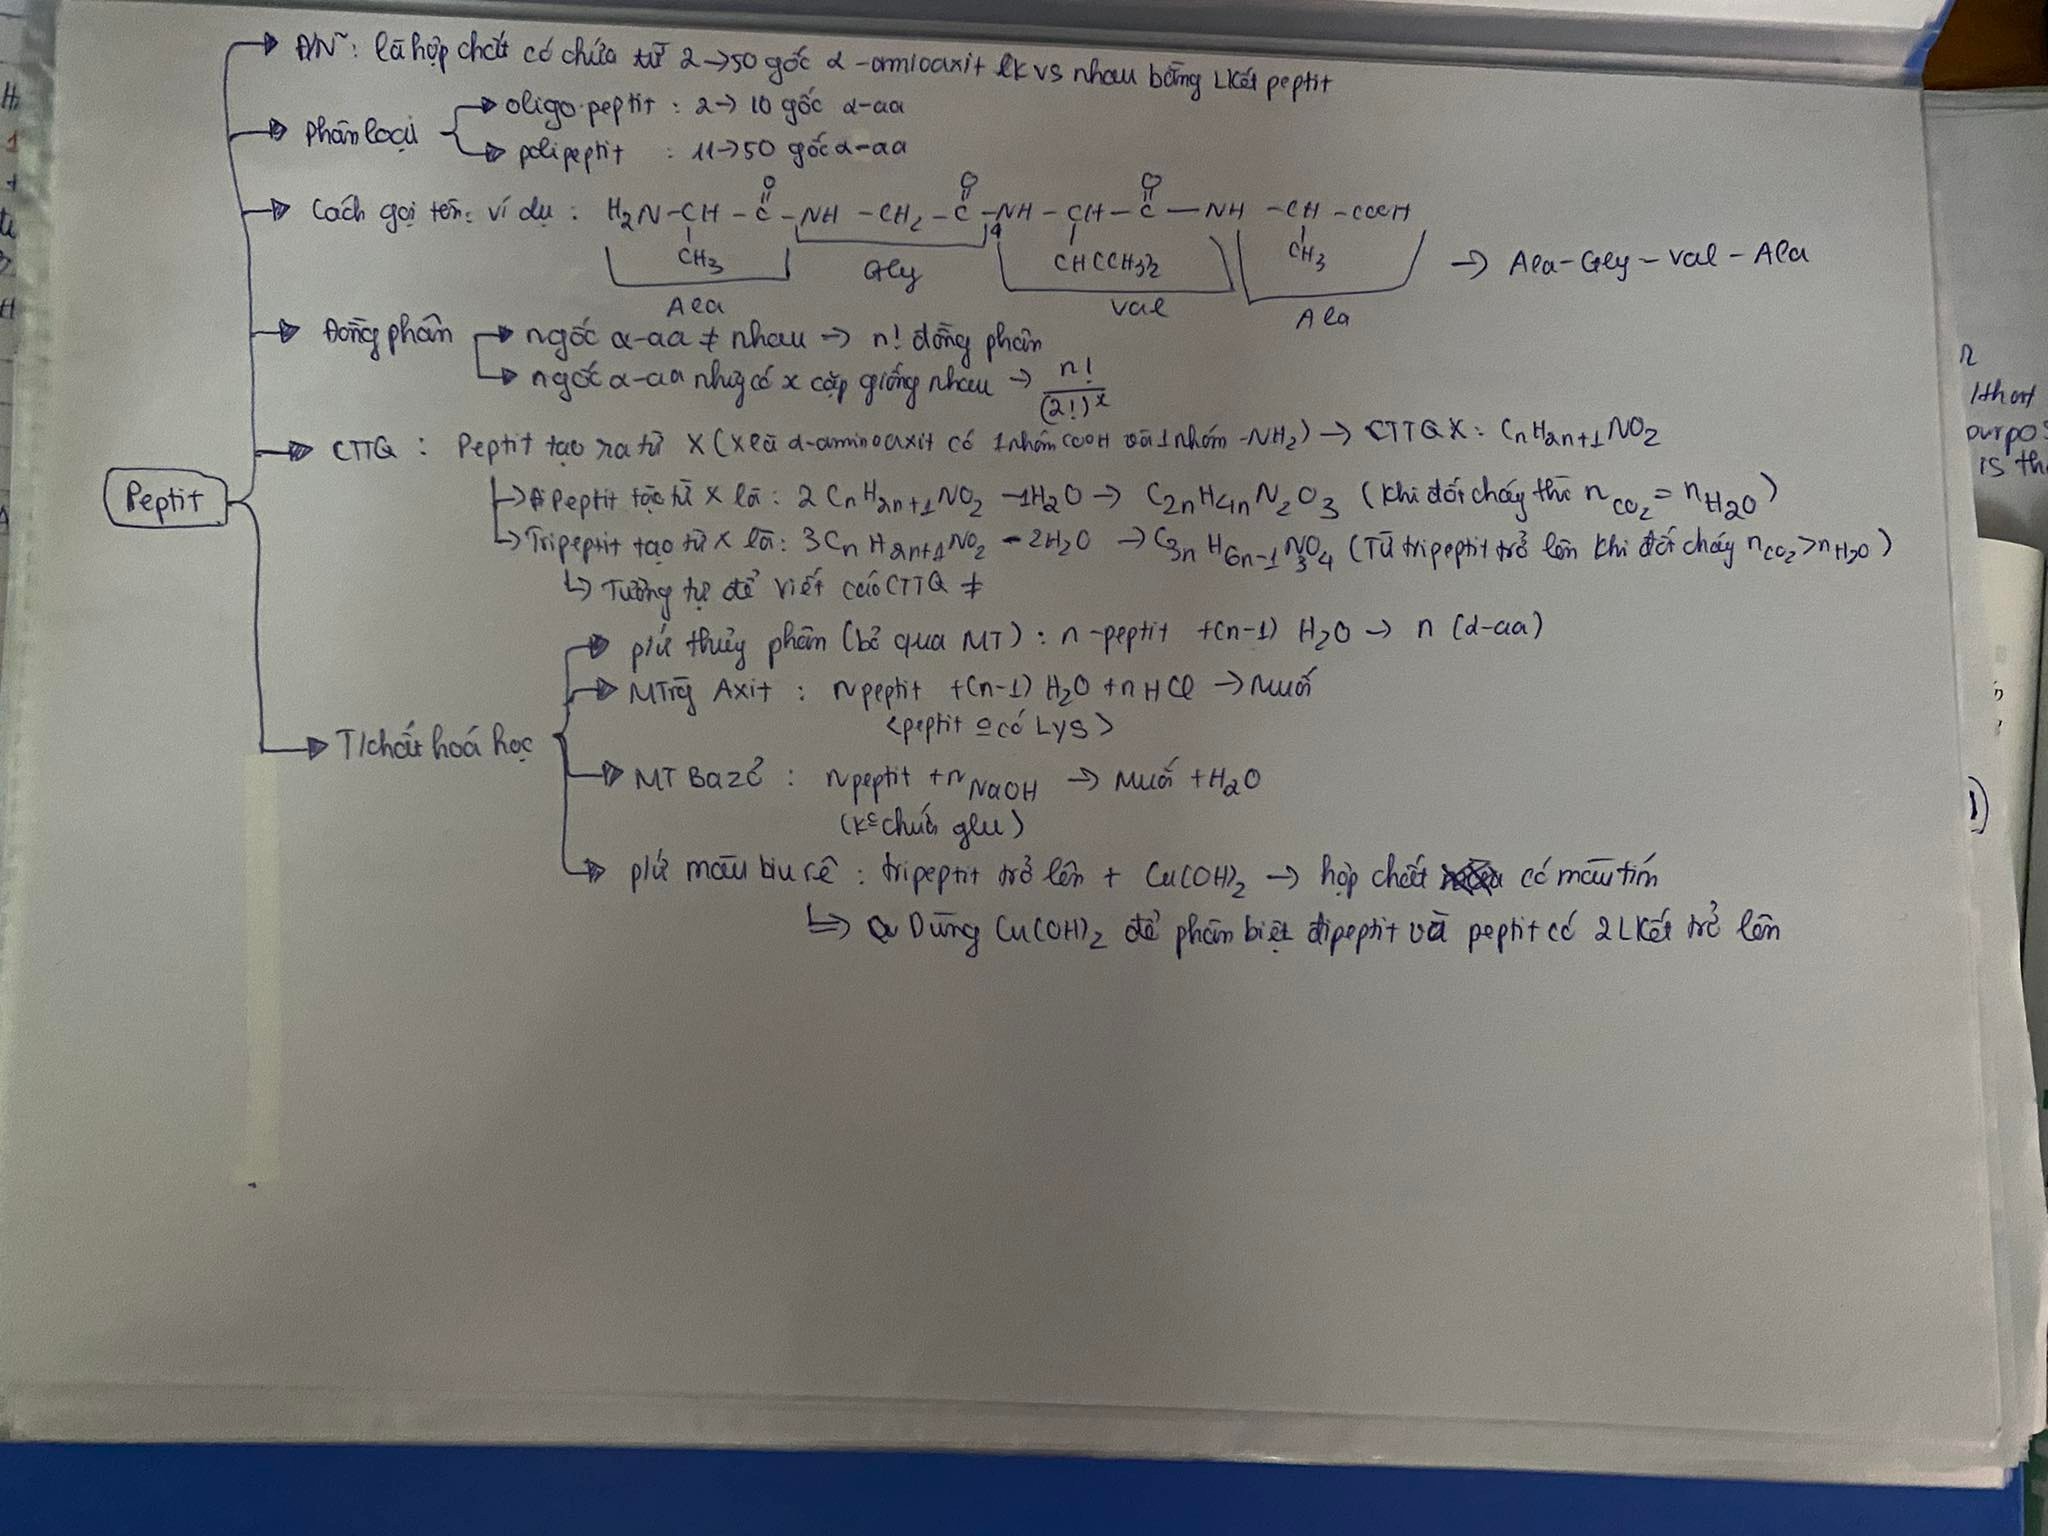 ĐN : là hợp chất có chứa từ 2→50 gốc α-amioaxit lk vs nhau bằng LKết peptit
Phân loại
oligopeptit : 2→ 10 gốc α-aa
polipeptit : 11→50 gốc α-aa
Cách gọi tên: ví dụ : H₂N – CH – C – NH – CH₂ – C – NH – CH – C – NH – CH – COOH
O O O
CH₃ CH(CH₃)₂ CH₃
Ala Gly Val Ala
→ Ala – Gly – Val – Ala
Đồng phân
n gốc α-aa ≠ nhau → n! đồng phân
n gốc α-aa nhưg có x cặp giống nhau → n!/(2!)ˣ
CTTQ : Peptit tạo ra từ X (X là α-aminoaxit có 1 nhóm COOH và 1 nhóm -NH₂) → CTTQ X : CₙH₂ₙ₊₁NO₂
Peptit
Peptit tạc từ X là : 2CₙH₂ₙ₊₁NO₂ – 1H₂O → C₂ₙH₄ₙN₂O₃ (Khi đốt cháy thì n CO₂ = n H₂O)
Tripeptit tạo từ X là : 3CₙH₂ₙ₊₁NO₂ – 2H₂O → C₃ₙH₆ₙ₋₁N₃O₄ (Từ tripeptit trở lên khi đốt cháy n CO₂ > n H₂O)
Tương tự để viết các CTTQ ≠
T/chất hoá học
p/ứ thủy phân (bỏ qua MT) : n-peptit + (n-1) H₂O → n (α-aa)
MTrg Axit : n peptit + (n-1) H₂O + n HCl → Muối
<peptit o có Lys>
MT Bazơ : n peptit + n NaOH → Muối + H₂O
(Ko chứa glu)
p/ứ màu biu rê : tripeptit trở lên + Cu(OH)₂ → hợp chất có màu tím
Dùng Cu(OH)₂ để phân biệt đipeptit và peptit có 2 LKết trở lên
n
1 that
purpos
is the